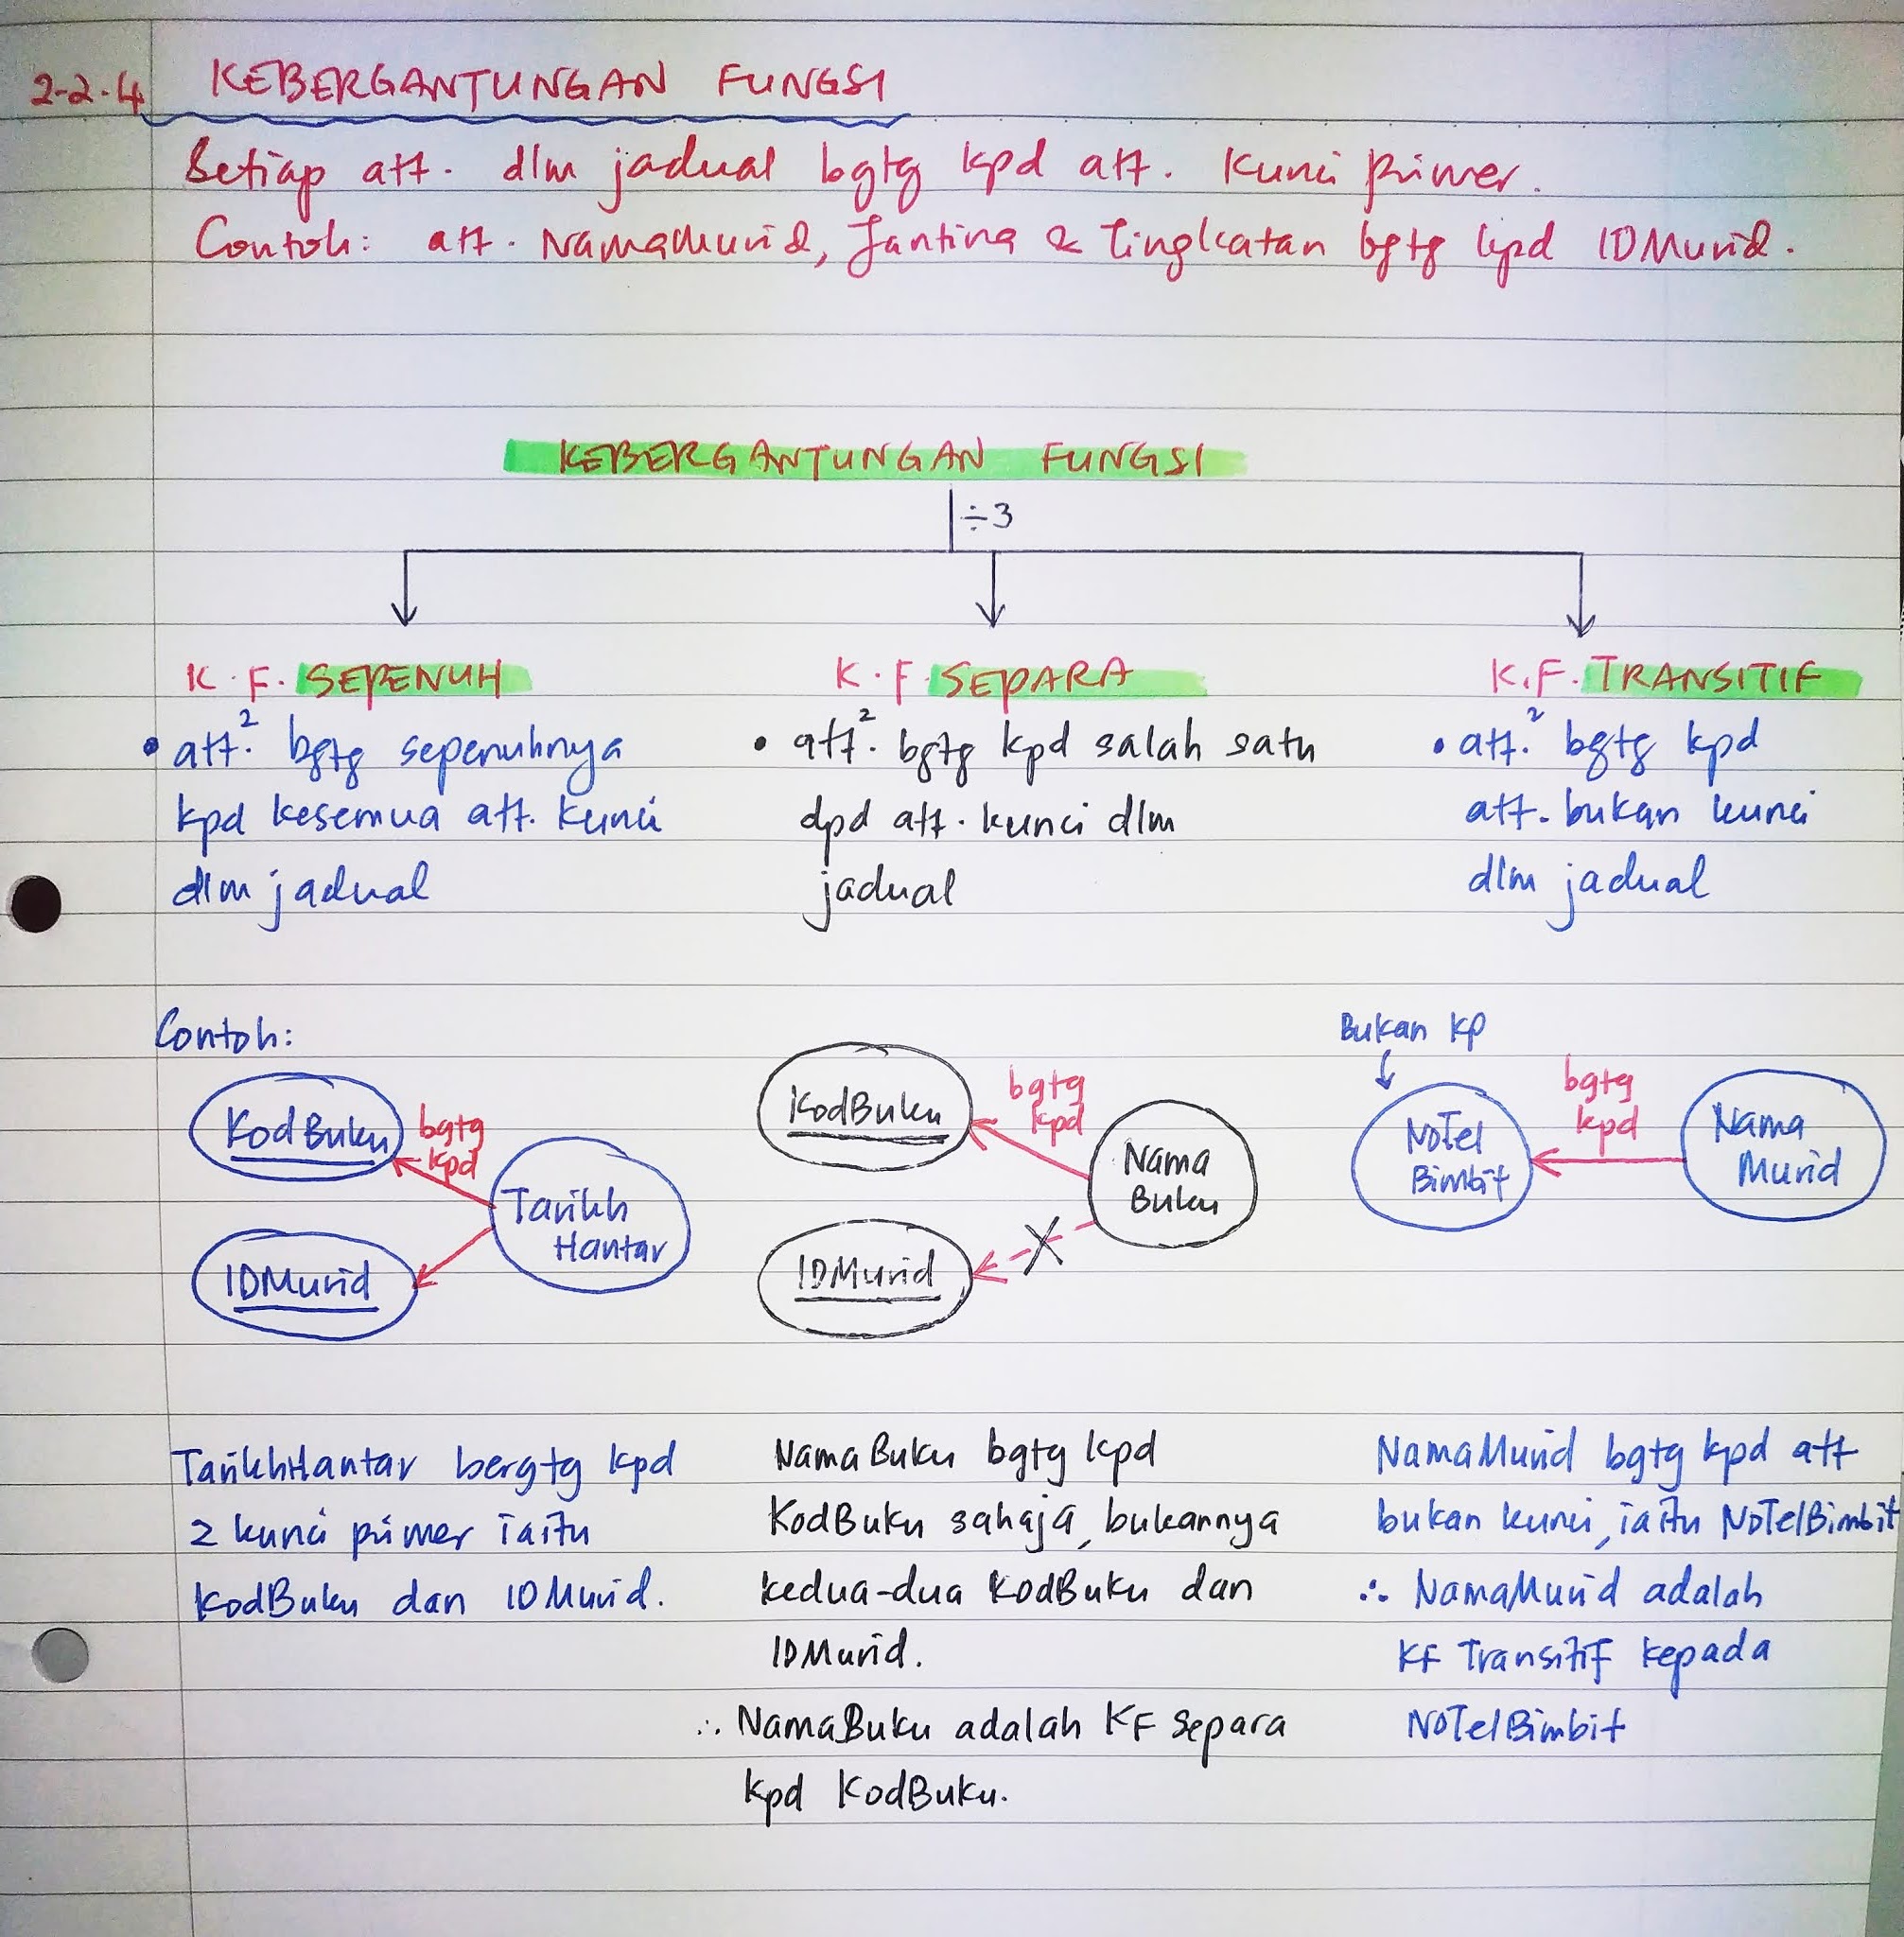 2-2.4 KEBERGANTUNGAN FUNGSI
Setiap att. dlm jadual bgtg kpd att. kunci primer.
Contoh: att. NamaMurid, Jantina & Tingkatan bgtg kpd IDMurid.
KEBERGANTUNGAN FUNGSI
÷3
K.F. SEPENUH
• att.² bgtg sepenuhnya
kpd kesemua att. kunci
dlm jadual
K.F. SEPARA
• att.² bgtg kpd salah satu
dpd att. kunci dlm
jadual
K.F. TRANSITIF
• att.² bgtg kpd
att. bukan kunci
dlm jadual
Contoh:
KodBuku
bgtg
kpd
Tarikh
Hantar
IDMurid
KodBuku
bgtg
kpd
Nama
Buku
X
IDMurid
Bukan KP
NoTel
Bimbit
bgtg
kpd
Nama
Murid
TarikhHantar bergtg kpd
2 kunci primer iaitu
KodBuku dan IDMurid.
NamaBuku bgtg kpd
KodBuku sahaja, bukannya
kedua-dua KodBuku dan
IDMurid.
∴ NamaBuku adalah KF Separa
kpd KodBuku.
NamaMurid bgtg kpd att
bukan kunci, iaitu NoTelBimbit
∴ NamaMurid adalah
KF Transitif kepada
NoTelBimbit